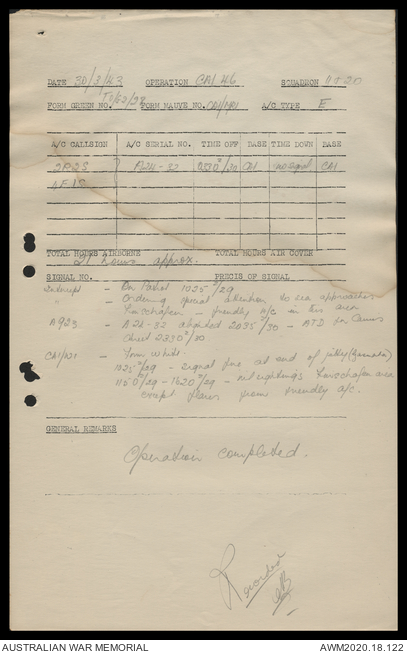 DATE 30/3/43 OPERATION CA1 46 SQUADRON 11 & 20
FORM GREEN NO. FORM MAUVE NO. A/C TYPE E
A/C CALLSIGN A/C SERIAL NO. TIME OFF BASE TIME DOWN BASE
A24-32 2030 /30 CA1 no signal CA1
TOTAL HOURS AIRBORNE TOTAL HOURS AIR COVER
21 hours approx.
SIGNAL NO. PRECIS OF SIGNAL
Intercept - On Patrol 1035 /29
" - Ordering special attention to sea approaches
Finschafen - friendly A/C in this area
A923 - A24-32 2035 /30 - ATD for Cairns
2330 /30
CA1/N21 - Form White.
1035 /29 - signal fire at end of jetty
1150 /29 - 1620 /29 - nil sightings Finschafen area
except flares from friendly a/c.
GENERAL REMARKS
Operation completed.
Recorded
AUSTRALIAN WAR MEMORIAL AWM2020.18.122